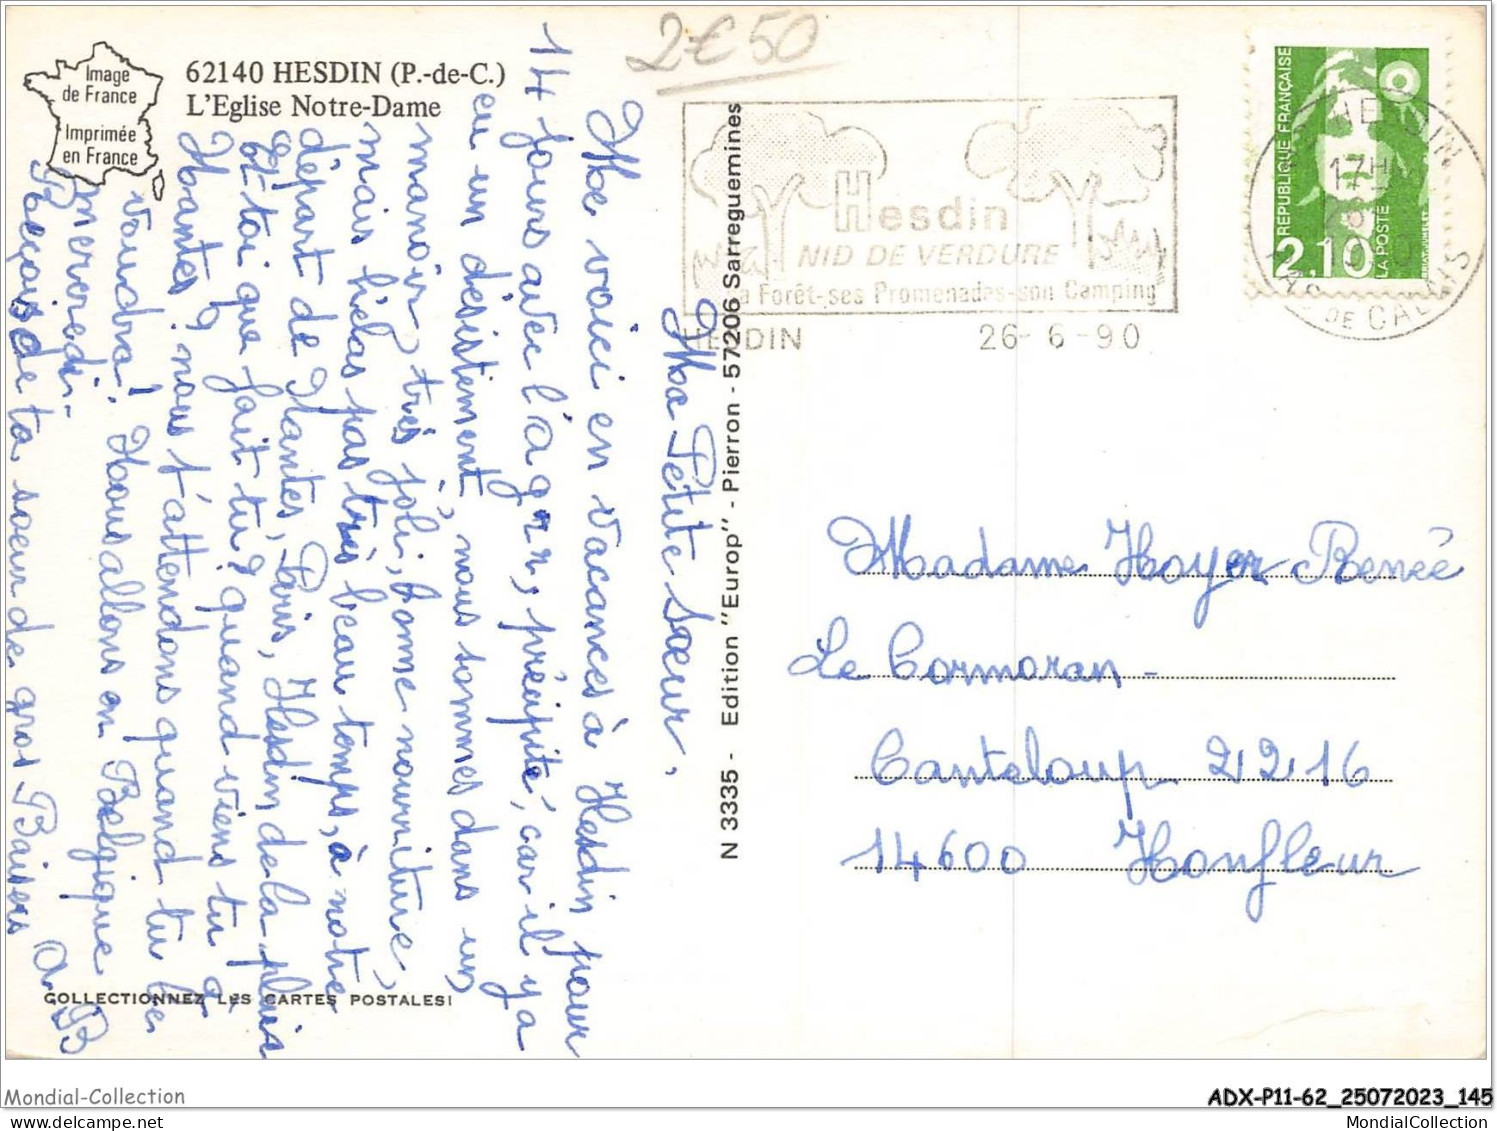 2€50
Image
de France
Imprimée
en France
62140 HESDIN (P.-de-C.)
L'Eglise Notre-Dame
Ma Petite Sœur,
Me voici en vacances à Hesdin pour
14 jours avec l'agrr, précipité, car il ya
eu un désistement, nous sommes dans un
manoir, très joli, bonne nourriture,
mais hélas pas très beau temps, à notre
départ de Nantes, Paris, Hesdin de la pluie
Et toi que fait tu? quand viens tu à
Nantes? nous t'attendons quand tu le
voudra! Nous allons en Belgique
mercredi.
Reçois de ta soeur de gros Baisers
N 3335 - Edition "Europ" - Pierron - 57206 Sarreguemines
COLLECTIONNEZ LES CARTES POSTALES!
Hesdin
NID DE VERDURE
Forêt-ses Promenades-son Camping
HESDIN 26-6-90
REPUBLIQUE FRANÇAISE
2,10
LA POSTE
HESDIN
17H
PAS DE CALAIS
Madame Hoyer Renée
Le Cormoran -
Canteloup 2216
14600 Honfleur
Mondial-Collection
ADX-P11-62_25072023_145
MondialCollection